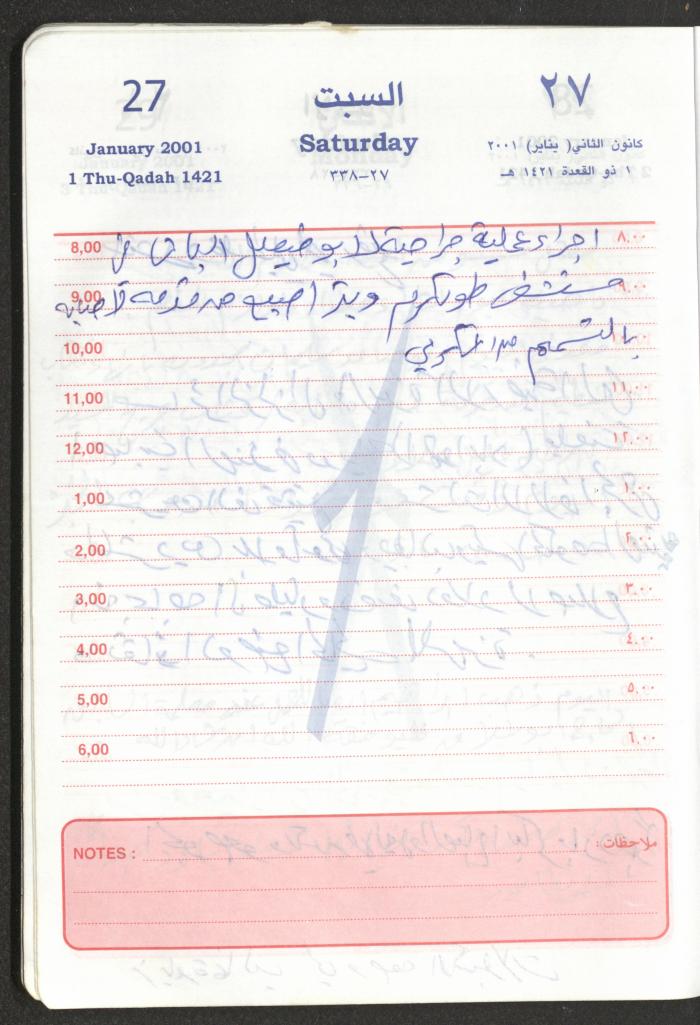 27 السبت ٢٧
January 2001 Saturday كانون الثاني( يناير) ٢٠٠١
1 Thu-Qadah 1421 ٢٧-٣٣٨ ١ ذو القعدة ١٤٢١ هـ
8,00 اجراء عملية جراحية لابو فيصل في ٨.٠٠
9,00 مستشفى طولكرم وبتر اصبع من قدمه لاصابته ٩.٠٠
10,00 بالتسمم من السكري
11,00 ١١.٠٠
12,00 ١٢.٠٠
1,00 ١.٠٠
2,00 ٢.٠٠
3,00 ٣.٠٠
4,00 ٤.٠٠
5,00 ٥.٠٠
6,00 ٦.٠٠
NOTES : ملاحظات: